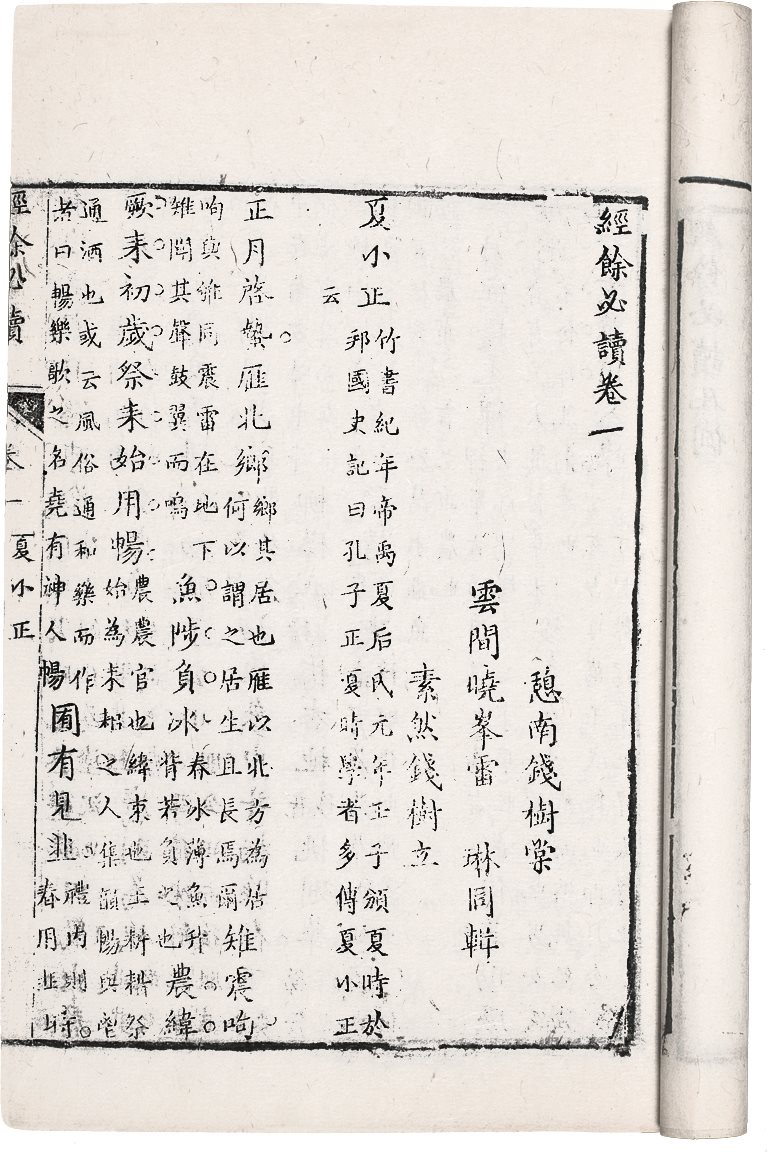 經餘必讀卷一
憩南錢樹棠
雲間曉峯雷 琳同輯
素然錢樹立
夏小正 竹書紀年帝禹夏后氏元年壬子頒夏時於
邦國史記曰孔子正夏時學者多傳夏小正
云
正月啓蟄雁北鄉 鄉其居也雁以北方為居
何以謂之居生且長焉爾 雉震呴
呴與雊同震雷在地下
雉聞其聲鼓翼而鳴 魚陟負冰 春冰薄魚升
背若負之也 農緯
厥耒初歲祭耒始用暢 農農官也緯束也王耕耤祭
始為耒耜之人集韻暢與鬯
通酒也或云風俗通和樂而作
者曰暢樂歌之名堯有神人暢 囿有見韭 禮內則
春用韭時
經餘必讀 卷一 夏小正